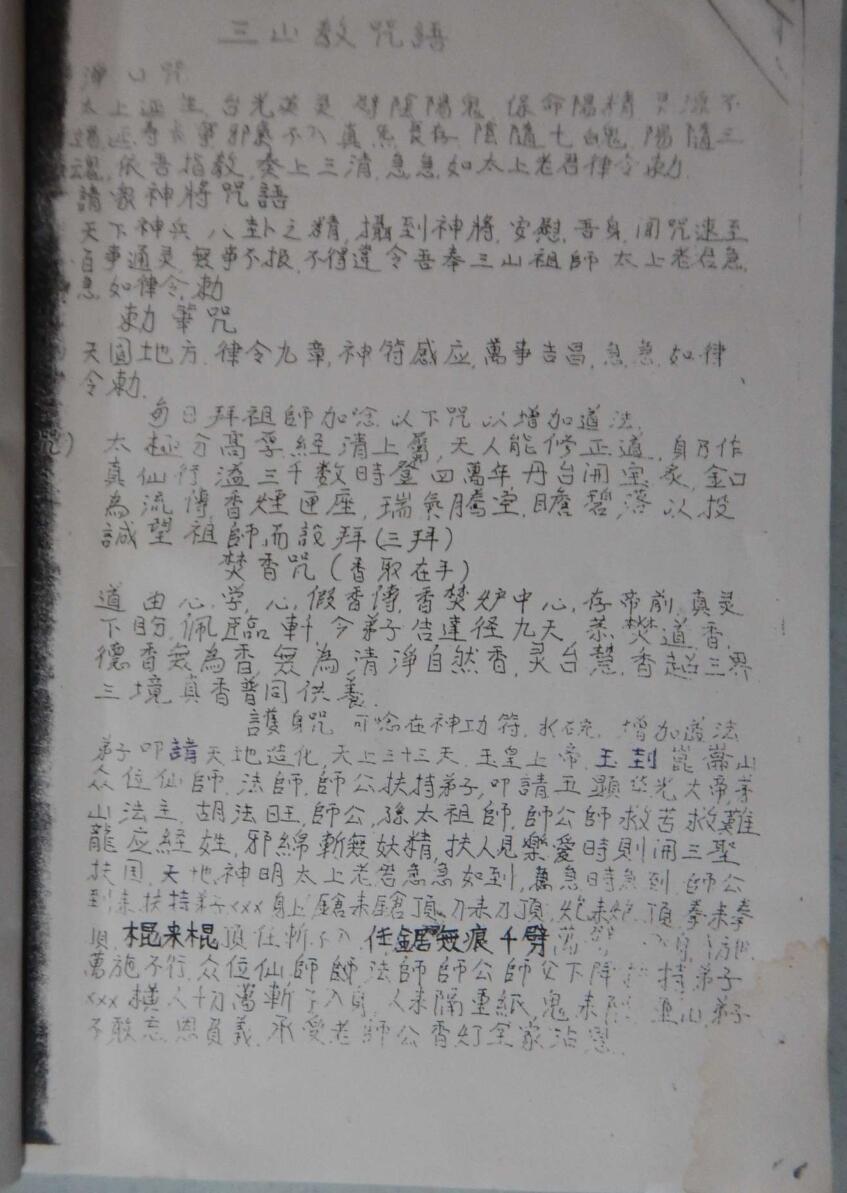 三山教咒語
淨口咒
太上 台光 陰陽鬼 保命陽精 不
邪 不入真炁長存 陰隨七魄 陽隨三
魂 依吾指教 奏上三清 急急如太上老君律令勅
請 神將咒語
天下神兵 八卦之精 攝到神將 安慰吾身 聞咒速至
百事通灵 無事不报 不得違令吾奉三山祖師 太上老君急
急如律令勅
勅筆咒
天圓地方 律令九章 神符感应 萬事吉昌 急急如律
令勅
每日拜祖師加唸以下咒以增加道法
咒) 太極分高孚經清上屬 天人能修正道 身乃作
真仙行溢三千数時登四萬年丹台開宝 金口
為流傳香煙匝座 瑞氣騰空 瞻碧落以投
誠望祖師而設拜(三拜)
焚香咒(香取在手)
道由心学 心假香傳 香焚炉中心 存帝前 真灵
下盼 佩臨軒 今弟子告達径九天 恭焚道香
德香無為香 無為清淨自然香 灵台慧香超三界
三境真香普同供養
護身咒 可唸在神功符 水碗 增加道法
弟子叩請天地造化 天上三十三天 玉皇上帝 王到崑崙山
众位仙師 法師 師公扶持弟子 叩請五顯华光大帝茅
山法主 胡法旺 師公 孫太祖師 師公師救苦救難
龍应経姓 邪綿斬無妖精 扶人見樂愛時則開三聖
扶国 天地神明太上老君急急如到 萬急時急到 師公
到來扶持弟子xxx身上 鎗來鎗頂 刀來刀頂 炮來炮頂 拳來拳
頂 棍来棍頂任斬不入 任鋸無痕千劈
萬施不行 众位仙師師法師師公師父下降 持弟子
xxx 横人十切萬斬不入身 人來隔重紙 鬼來 重山 弟子
不敢忘恩負義 承受老師公香灯全家沾恩